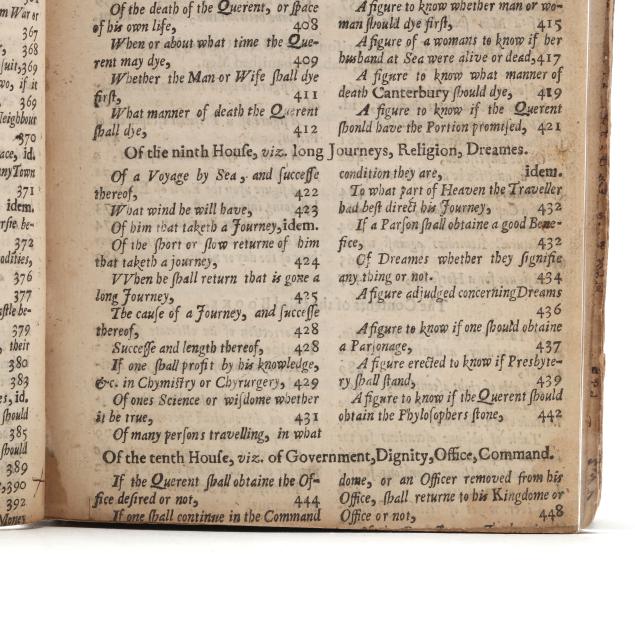 m War or
367
368
suit,369
wo, if it
369
Neighbour
370
ace, id.
any Town
371
idem.
rsie be-
372
odities,
376
377
astle be-
379
their
380
383
es, id.
should
385
should
389
,390
392
Money
Of the death of the Querent, or space
of his own life, 408
When or about what time the Que-
rent may dye, 409
Whether the Man or Wife shall dye
first, 411
What manner of death the Querent
shall dye, 412
A figure to know whether man or wo-
man should dye first, 415
A figure of a womans to know if her
husband at Sea were alive or dead,417
A figure to know what manner of
death Canterbury should dye, 419
A figure to know if the Querent
should have the Portion promised, 421
Of the ninth House, viz. long Journeys, Religion, Dreames.
Of a Voyage by Sea, and successe
thereof, 422
What wind he will have, 423
Of him that taketh a Journey,idem.
Of the short or slow returne of him
that taketh a journey, 424
VVhen he shall return that is gone a
long Journey, 425
The cause of a Journey, and successe
thereof, 428
Successe and length thereof, 428
If one shall profit by his knowledge,
&c. in Chymistry or Chyrurgery, 429
Of ones Science or wisdome whether
it be true, 431
Of many persons travelling, in what
condition they are, idem.
To what part of Heaven the Traveller
had best direct his Journey, 432
If a Parson shall obtaine a good Bene-
fice, 432
Of Dreames whether they signifie
any thing or not. 434
A figure adjudged concerningDreams
436
A figure to know if one should obtaine
a Parsonage, 437
A figure erected to know if Presbyte-
ry shall stand, 439
A figure to know if the Querent should
obtain the Phylosophers stone, 442
Of the tenth House, viz. of Government,Dignity,Office,Command.
If the Querent shall obtaine the Of-
fice desired or not, 444
If one shall continue in the Command
dome, or an Officer removed from his
Office, shall returne to his Kingdome or
Office or not, 448